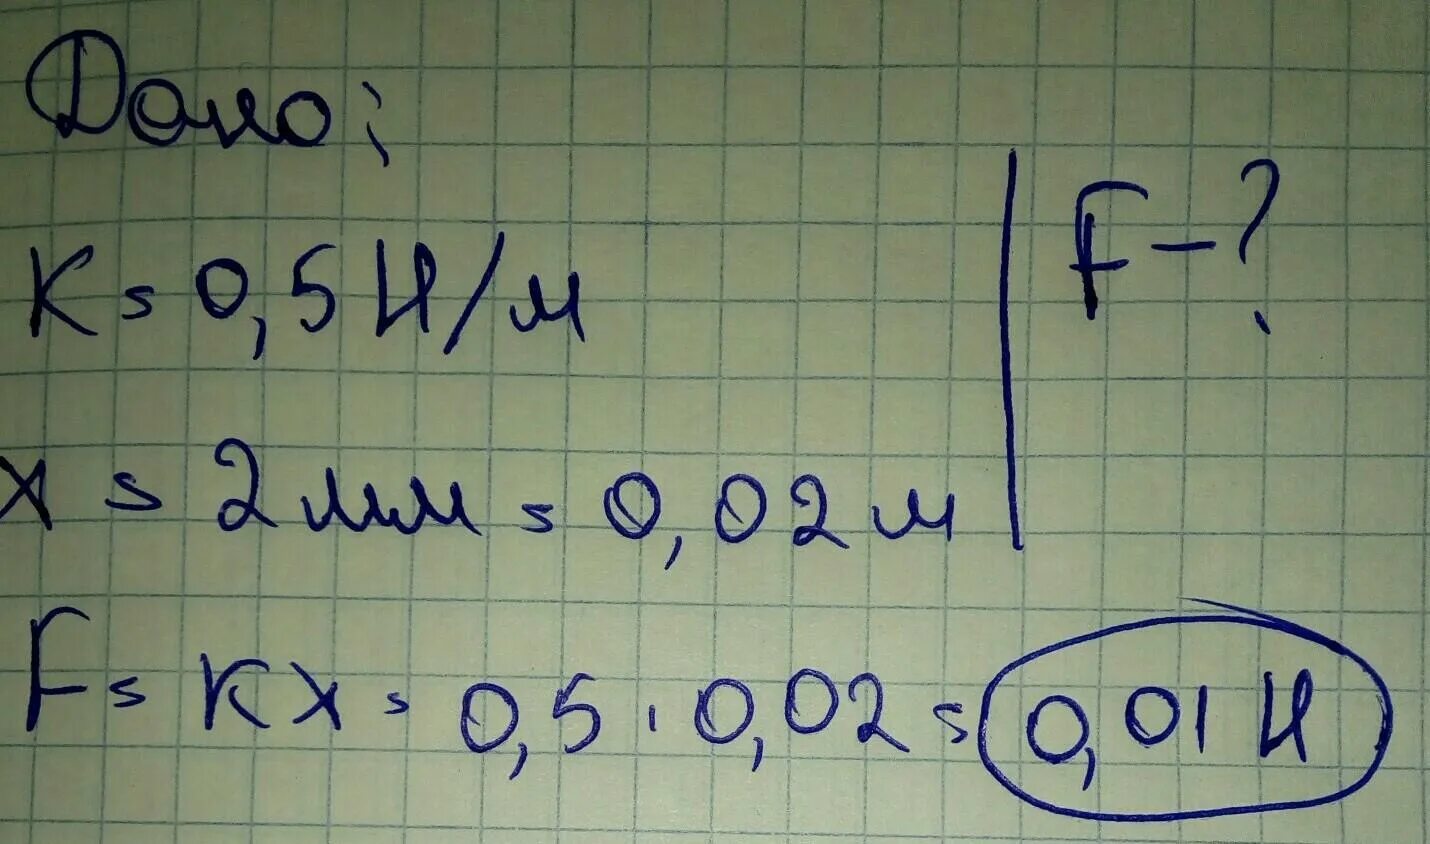 Дано:
F - ?
K = 0,5 Н/м
x = 2 мм = 0,02 м
F = Kx = 0,5 · 0,02 = 0,01 Н